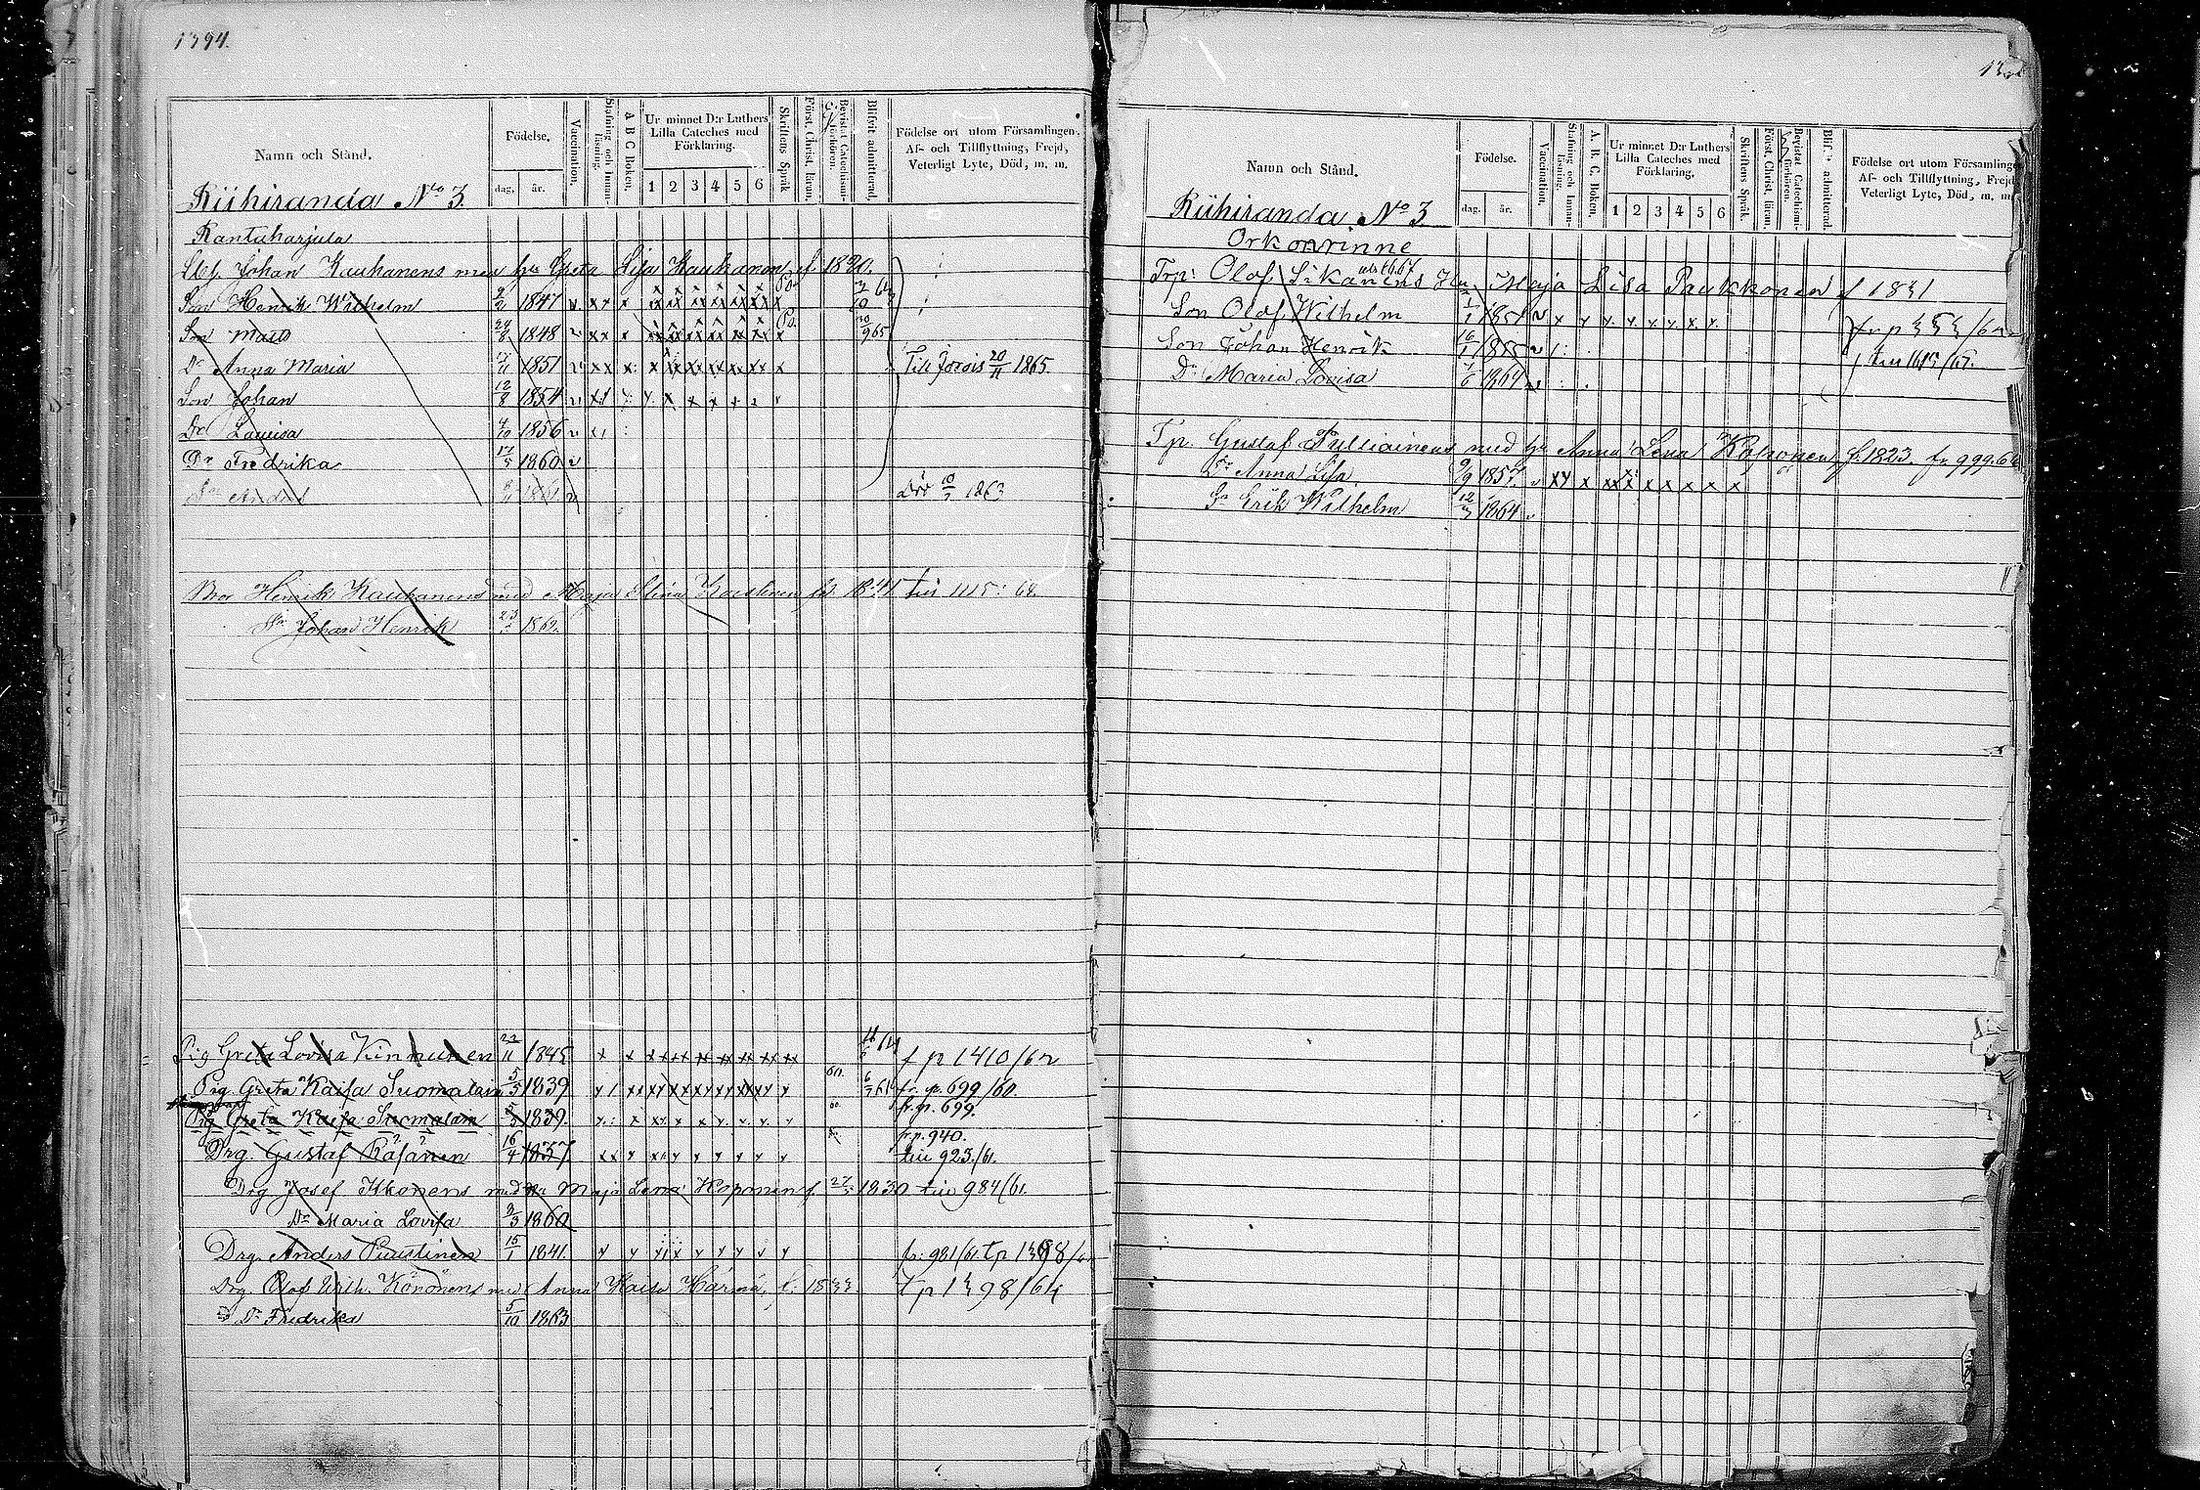 1394.
Namn och Stånd.
Födelse.
dag. år.
Vaccination.
Stafning och Innanläsning.
A B C Boken.
Ur minnet D:r Luthers Lilla Cateches med Förklaring.
1 2 3 4 5 6
Skriftens Språk
Först. Christ. läran.
Bevistat Catechismiförhören.
Blifvit admitterad.
Födelse ort utom Församlingen, Af- och Tillflyttning, Frejd, Veterligt Lyte, Död, m. m.
Riihiranda No 3.
Rantaharjula
Johan Kauhanens med hu Greta Lisa Kauhanen f. 1820.
Son Henrik Wilhelm 1847
Son 1848
Dr Anna Maria 1851 Till Jorois 20/11 1865.
Son Johan 12/8 1854
Dr Lovisa 4/10 1856
Dr Fredrika 17/5 1860
Sn Anders 1861 Död 10/7 1863
Bror Henrik Kauhanens med Maja Stina fd. 1841 till 1115: 62.
Sn Johan Henrik 1862.
Pig Greta Lovisa Kinnunen 22/11 1845 f p 1410/62
Pig Greta Kaisa Suomalain 5/5 1839 fr. p. 699/60.
Pig Greta Kaisa Suomalain 5/5 1839. fr. p. 699.
fr p. 940.
Drg. Gustaf Räsänen 16/4 1837. till 923./61.
Drg Josef Ikonens med hu Maja Lena Koponen f. 27/5 1830 till 984/61.
Dr Maria Lovisa 2/3 1860
Drg. Anders Puustinen 15/1 1841. fr: 981/61. t p 1398/
Drg. Olof Wilh. Könönens med Anna Kaisa Härmä, f. 1833. t p 1398/64
Dr Fredrika 5/10 1863
Namn och Stånd.
Födelse.
dag. år.
Vaccination.
Stafning och Innanläsning.
A. B. C. Boken.
Ur minnet D:r Luthers Lilla Cateches med Förklaring.
1 2 3 4 5 6
Skriftens Språk.
Först. Christ. läran.
Bevistat Catechismiförhören.
Blif. admitterad.
Födelse ort utom Församlinge
Af- och Tillflyttning, Frejd
Veterligt Lyte, Död, m. m
Riihiranda No 3.
Orkonrinne
Trp: Olof Sikanens Hu Maja Lisa Paukkonen f 1831
Son Olof Wilhelm 1/1 1851 fr p 353/62
Son Johan Henrik 16/1 1855 till 1615/67.
Dr Maria Lovisa 1/6 1864
Tp. Gustaf Pylliäinens med hu Anna Lena Koponen f. 1823. fr 999.6
Dr Anna Lisa. 9/9 1857.
Sn Erik Wilhelm 12/3 1864